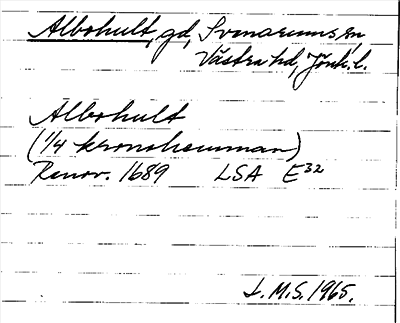 Albohult, gd, Svenarums sn,
Västra hd, Jönk. l.
Albohult
(1/4 kronohemman)
Renov. 1689 LSA E32
I.M.S. 1965.